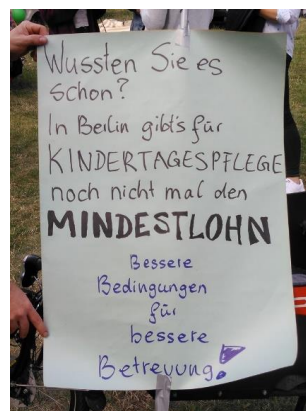 Wussten Sie es
schon?
In Berlin gibt's für
KINDERTAGESPFLEGE
noch nicht mal den
MINDESTLOHN
Bessere
Bedingungen
für
bessere
Betreuung!